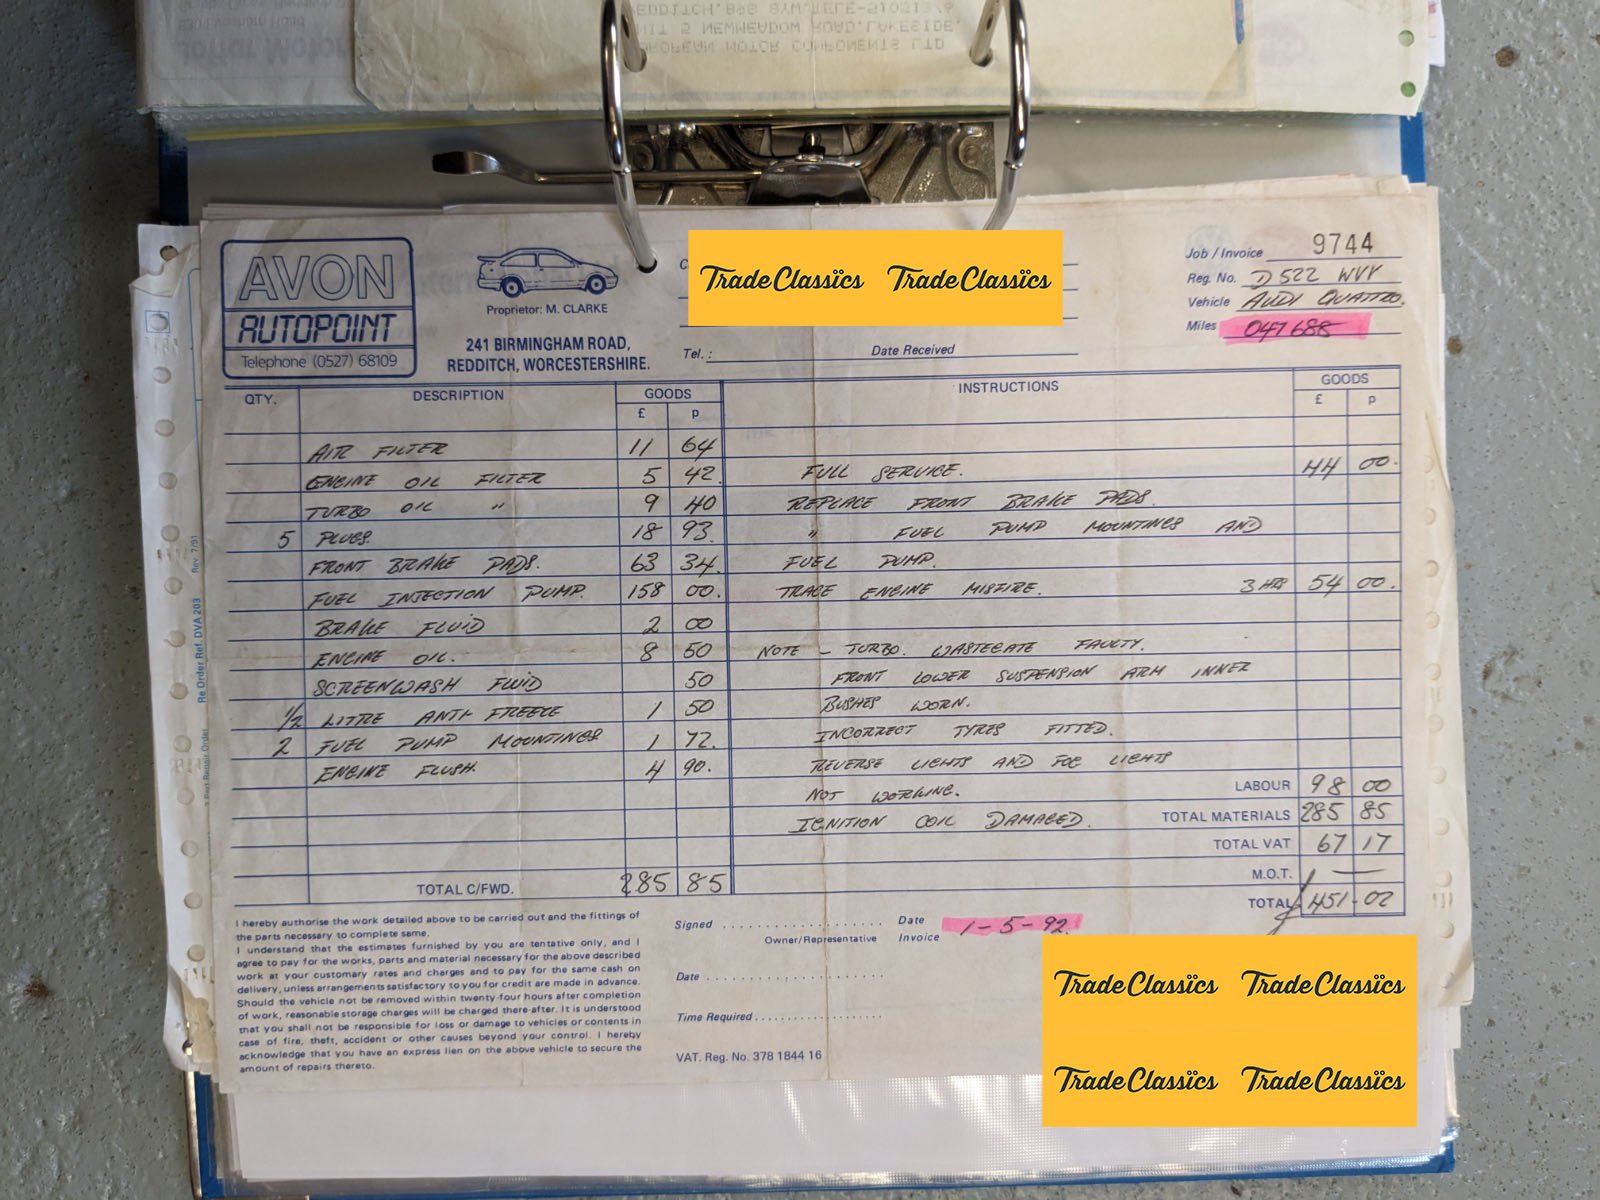 EDDITCH, B98 8YW. TELE-510513/6
NIT 5 NEWMEADOW ROAD, LAKESIDE,
UROPEAN MOTOR COMPONENTS LTD
AVON
AUTOPOINT
Telephone (0527) 68109
Proprietor: M. CLARKE
241 BIRMINGHAM ROAD,
REDDITCH, WORCESTERSHIRE.
TradeClassics TradeClassics
Tel. :
Date Received
Job / Invoice 9744
Reg. No. D522 WVY
Vehicle AUDI QUATTRO.
Miles 047688
QTY. DESCRIPTION GOODS £ p
AIR FILTER 11 64
ENGINE OIL FILTER 5 42
TURBO OIL " 9 40
5 PLUGS. 18 93.
FRONT BRAKE PADS. 63 34.
FUEL INJECTION PUMP. 158 00.
BRAKE FLUID 2 00
ENGINE OIL. 8 50
SCREENWASH FLUID 50
1/2 LITRE ANTI-FREEZE 1 50
2 FUEL PUMP MOUNTINGS 1 72.
ENGINE FLUSH. 4 90.
TOTAL C/FWD. 285 85
INSTRUCTIONS GOODS £ p
FULL SERVICE. 44 00.
REPLACE FRONT BRAKE PADS.
" FUEL PUMP MOUNTINGS AND
FUEL PUMP.
TRACE ENGINE MISFIRE. 3 HRS 54 00.
NOTE - TURBO. WASTEGATE FAULTY.
FRONT LOWER SUSPENSION ARM INNER
BUSHES WORN.
INCORRECT TYRES FITTED.
REVERSE LIGHTS AND FOG LIGHTS
NOT WORKING.
IGNITION COIL DAMAGED.
LABOUR 98 00
TOTAL MATERIALS 285 85
TOTAL VAT 67 17
M.O.T. —
TOTAL £451-02
I hereby authorise the work detailed above to be carried out and the fittings of
the parts necessary to complete same.
I understand that the estimates furnished by you are tentative only, and I
agree to pay for the works, parts and material necessary for the above described
work at your customary rates and charges and to pay for the same cash on
delivery, unless arrangements satisfactory to you for credit are made in advance.
Should the vehicle not be removed within twenty-four hours after completion
of work, reasonable storage charges will be charged there-after. It is understood
that you shall not be responsible for loss or damage to vehicles or contents in
case of fire, theft, accident or other causes beyond your control. I hereby
acknowledge that you have an express lien on the above vehicle to secure the
amount of repairs thereto.
Signed
Owner/Representative
Date
Time Required
VAT. Reg. No. 378 1844 16
Date
Invoice 1-5-92.
TradeClassics TradeClassics
TradeClassics TradeClassics
Re Order Ref. DVA 203 Rev. 7/91